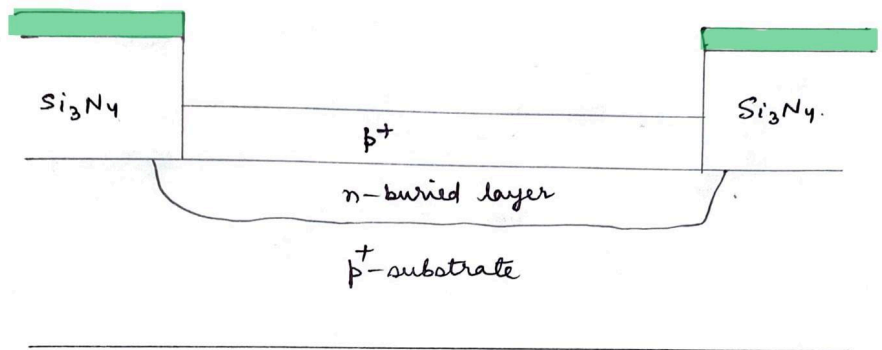 Si₃N4
Si₃N4.
p⁺
n-buried layer
p⁺-substrate